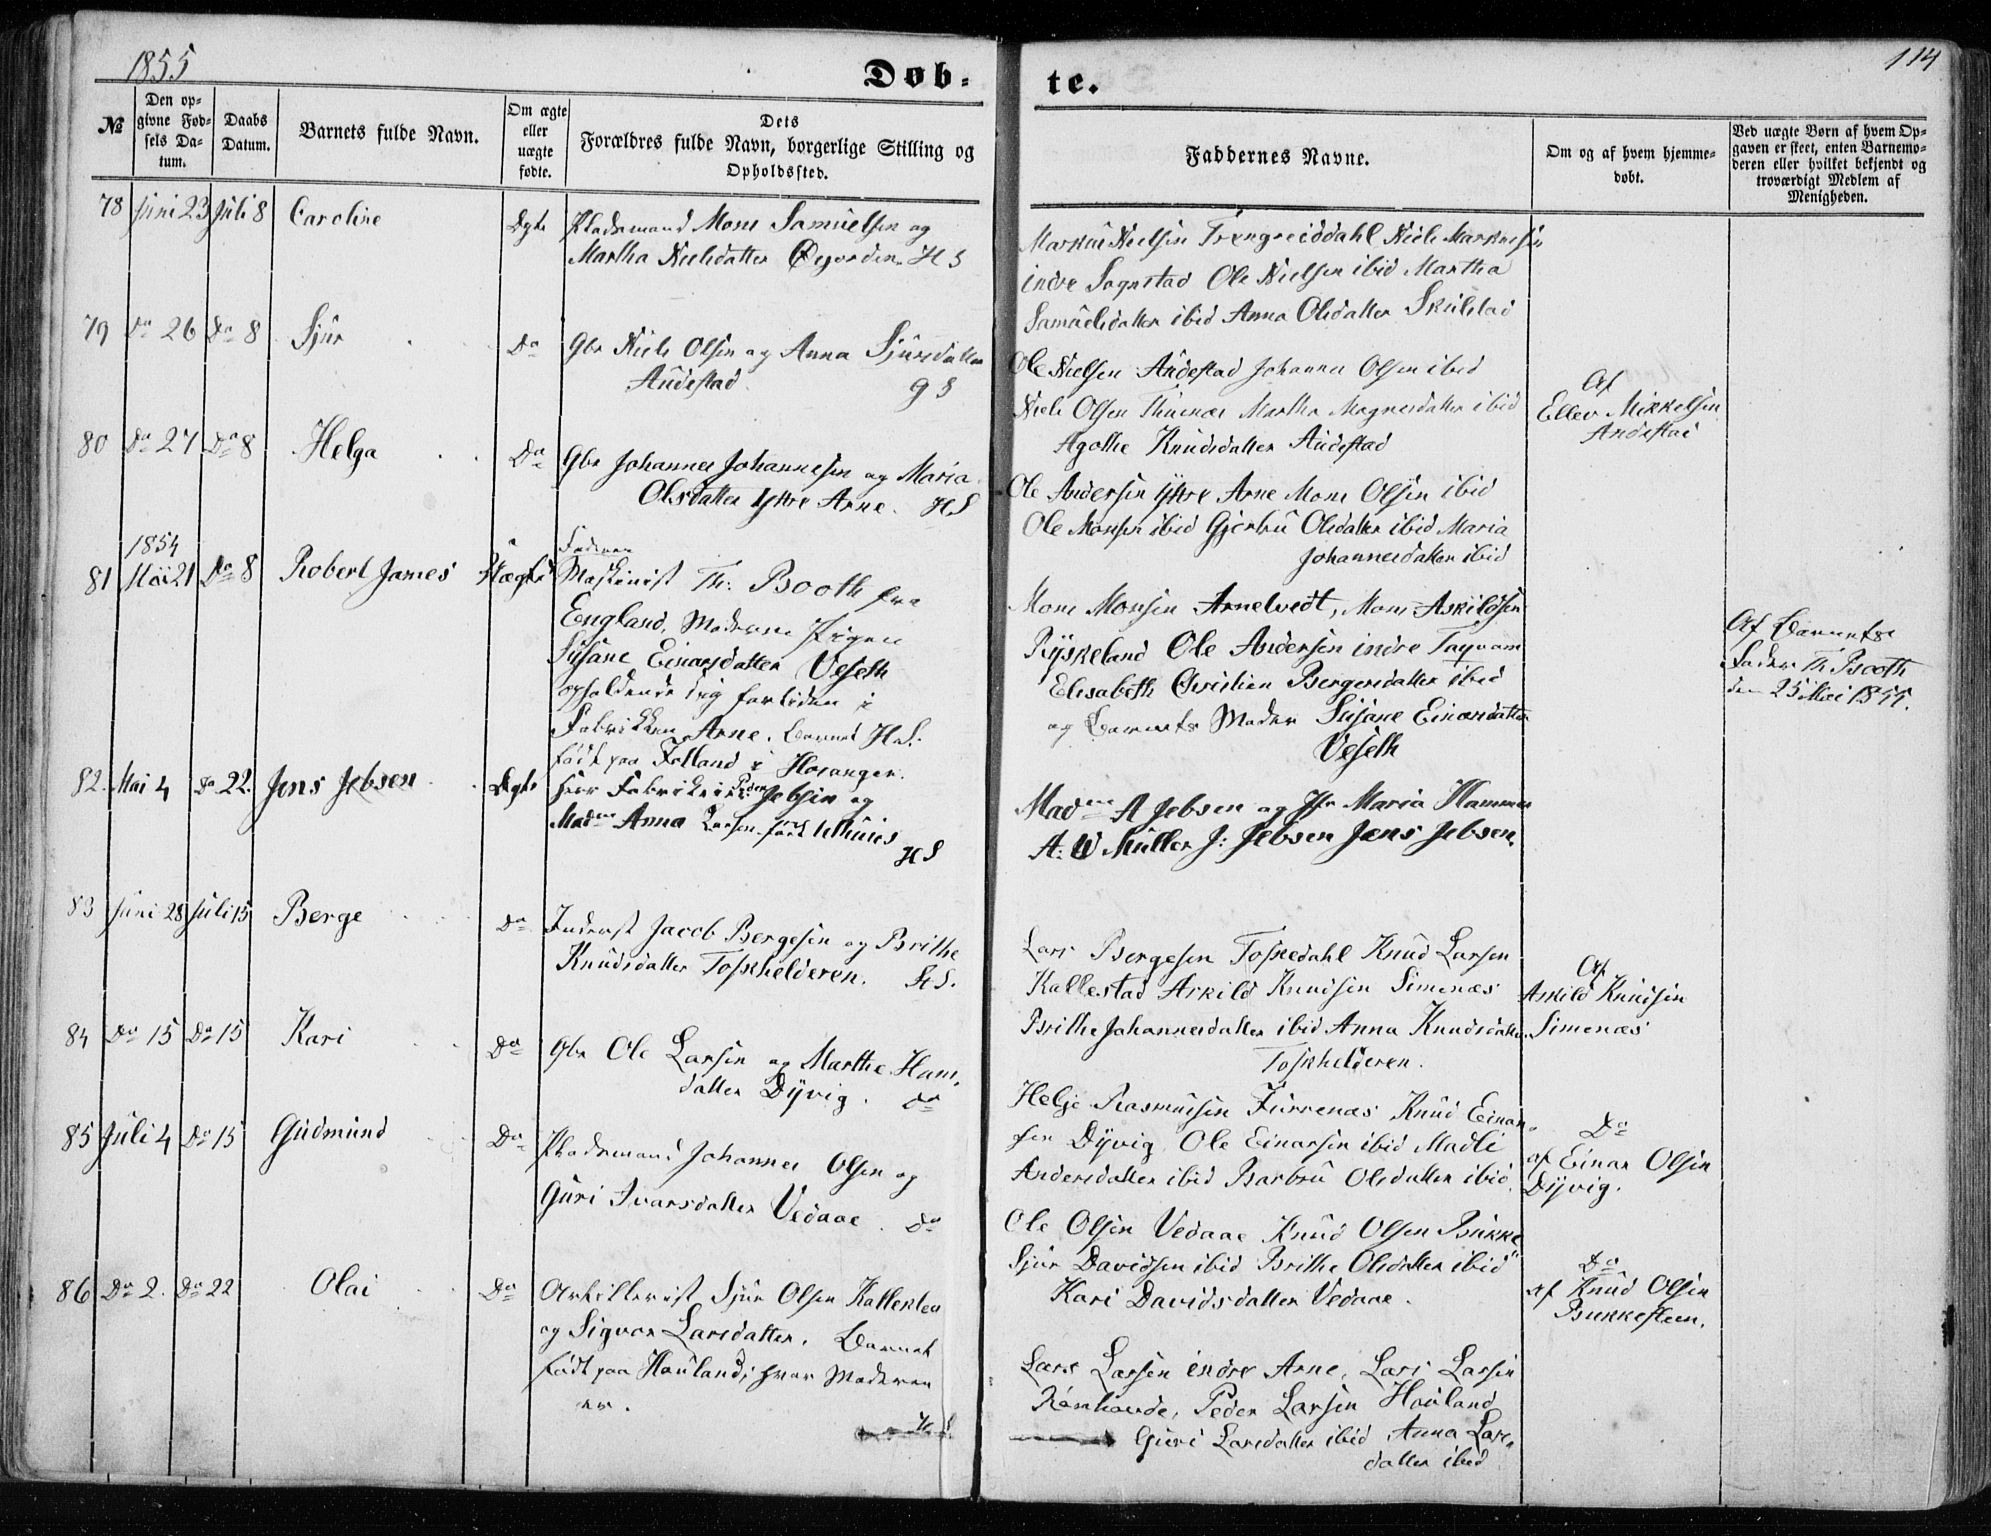 1855
114
Døb-
te.
№
Den op-
givne Fød-
sels Da-
tum.
Daabs
Datum.
Barnets fulde Navn.
Om ægte
eller
uægte
fødte.
Dets
Forældres fulde Navn, borgerlige Stilling og
Opholdssted.
Faddernes Navne.
Om og af hvem hjemme-
døbt.
Ved uægte Børn af hvem Op-
gaven er skeet, enten Barnemo-
deren eller hvilket bekjendt og
troværdigt Medlem af
Menigheden.
78 Juni 23 Juli 8 Caroline Ægte Pladsmand Mons Samuelsen og
Martha Nielsdatter HS
Markus Nielsen Niels Markusen
indre Sognstad Ole Nielsen ibid Martha
Samuelsdatter ibid Anna Olsdatter Skulstad
79 Do 26 Do 8 Sjur Do Gbr Niels Olsen og Anna Sjursdatter
Audestad
Ole Nielsen Audestad Johannes Olsen ibid
Niels Olsen Martha Magnesdatter ibid
Agathe Knudsdatter Audestad
Af
Ellev Mikkelsen
Audestad
80 Do 27 Do 8 Helga Do Gbr Johannes Johannesen og Maria
Olsdatter Ytre Arne. HS
Ole Andersen Ytre Arne Mons Olsen ibid
Ole Monsen ibid Gjertru Olsdatter ibid Maria
Johannesdatter ibid
1854
81 Mai 21 Do 8 Robert James Uægte Faderen
Maskinist Th: Booth fra
England, Moderen Pigen
Susane Einarsdatter Veseth
opholdende sig for tiden i
Fabrikken Arne. Barnet HS.
født paa Folland i Hosanger.
Mons Monsen Arnetvedt, Mons Askildsen
Ryskeland Ole Andersen indre
Elisabeth Christien Bergersdatter ibid
og Barnets Moder Susane Einarsdatter
Veseth
Af Barnets
Fader Th. Booth
den 25 Mai 1855.
82. Mai 4 Do 22. Jens Jebsen Ægte Herr Peder Jebsen og
Madm Anna født
HS
Madm A Jebsen og Jfr Maria Hammer
A: W Müller J: Jebsen Jens Jebsen.
83 Juni 28 Juli 15 Berge Do Inderst Jacob Bergesen og Brithe
Knudsdatter Toskhelderen. HS.
Lars Bergesen Toskedahl Knud Larsen
Kallestad Askild Knudsen Simenæs
Brithe Johannesdatter ibid Anna Knudsdatter
Toskhelderen.
Af
Askild Knudsen
Simenæs
84 Do 15 Do 15 Kari Do Gbr Ole Larsen og Marthe Hans-
datter Dyvig. do
Helje Rasmusen Furrenæs Knud Einar-
sen Dyvig, Ole Einarsen ibid Madli
Andersdatter ibid Barbru Olsdatter ibid.
Do
af Einar Olsen
Dyvig.
85 Juli 4 Do 15 Gudmund Do Pladsmand Johannes Olsen og
Guri Ivarsdatter Vedaae. do
Ole Olsen Vedaae Knud Olsen Bukke
Sjur Davidsen ibid Brithe Olsdatter ibid
Kari Davidsdatter Vedaae.
Do
af Knud Olsen
Bukkesteen.
86 Do 2. Do 22 Olai Do Artillerist Sjur Olsen
og Sigvor Larsdatter. Barnet
født paa Houland, hvor Moderen
er.
HS
Lars Larsen indre Arne, Lars Larsen
Peder Larsen Houland
Guri Larsdatter ibid Anna Lars-
datter ibid